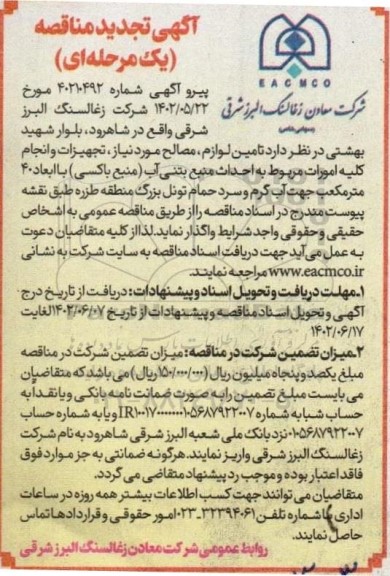 آگهی تجدید مناقصه
(یک مرحله‌ای)
EACMCO
شرکت معادن زغالسنگ البرز شرقی
(سهامی خاص)
پیرو آگهی شماره ۴۰۲۱۰۴۹۲ مورخ
۱۴۰۲/۰۵/۲۲ شرکت زغالسنگ البرز
شرقی واقع در شاهرود، بلوار شهید
بهشتی در نظر دارد تامین لوازم، مصالح مورد نیاز، تجهیزات و انجام
کلیه امورات مربوط به احداث منبع بتنی آب (منبع باکسی) با ابعاد ۴۰
مترمکعب جهت آب گرم و سرد حمام تونل بزرگ منطقه طزره طبق نقشه
پیوست مندرج در اسناد مناقصه را از طریق مناقصه عمومی به اشخاص
حقیقی و حقوقی واجد شرایط واگذار نماید. لذا از کلیه متقاضیان دعوت
به عمل می‌آید جهت دریافت اسناد مناقصه به سایت شرکت به نشانی
www.eacmco.ir مراجعه نمایند.
۱.مهلت دریافت و تحویل اسناد و پیشنهادات: دریافت از تاریخ درج
آگهی و تحویل اسناد مناقصه و پیشنهادات از تاریخ ۱۴۰۲/۰۶/۰۷ لغایت
۱۴۰۲/۰۶/۱۷
۲.میزان تضمین شرکت در مناقصه: میزان تضمین شرکت در مناقصه
مبلغ یکصد و پنجاه میلیون ریال (۱۵۰/۰۰۰/۰۰۰ ریال) می باشد که متقاضیان
می بایست مبلغ تضمین را به صورت ضمانت نامه بانکی و یا نقدا به
حساب شبا به شماره و یا به شماره حساب
۰۱۰۵۶۸۷۹۲۲۰۰۷ نزد بانک ملی شعبه البرز شرقی شاهرود به نام شرکت
زغالسنگ البرز شرقی واریز نمایند. هرگونه ضمانتی به جز موارد فوق
فاقد اعتبار بوده و موجب رد پیشنهاد متقاضی می گردد.
متقاضیان می توانند جهت کسب اطلاعات بیشتر همه روزه در ساعات
اداری با شماره تلفن ۳۲۳۹۴۰۶۱-۰۲۳ امور حقوقی و قراردادها تماس
حاصل نمایند.
روابط عمومی شرکت معادن زغالسنگ البرز شرقی